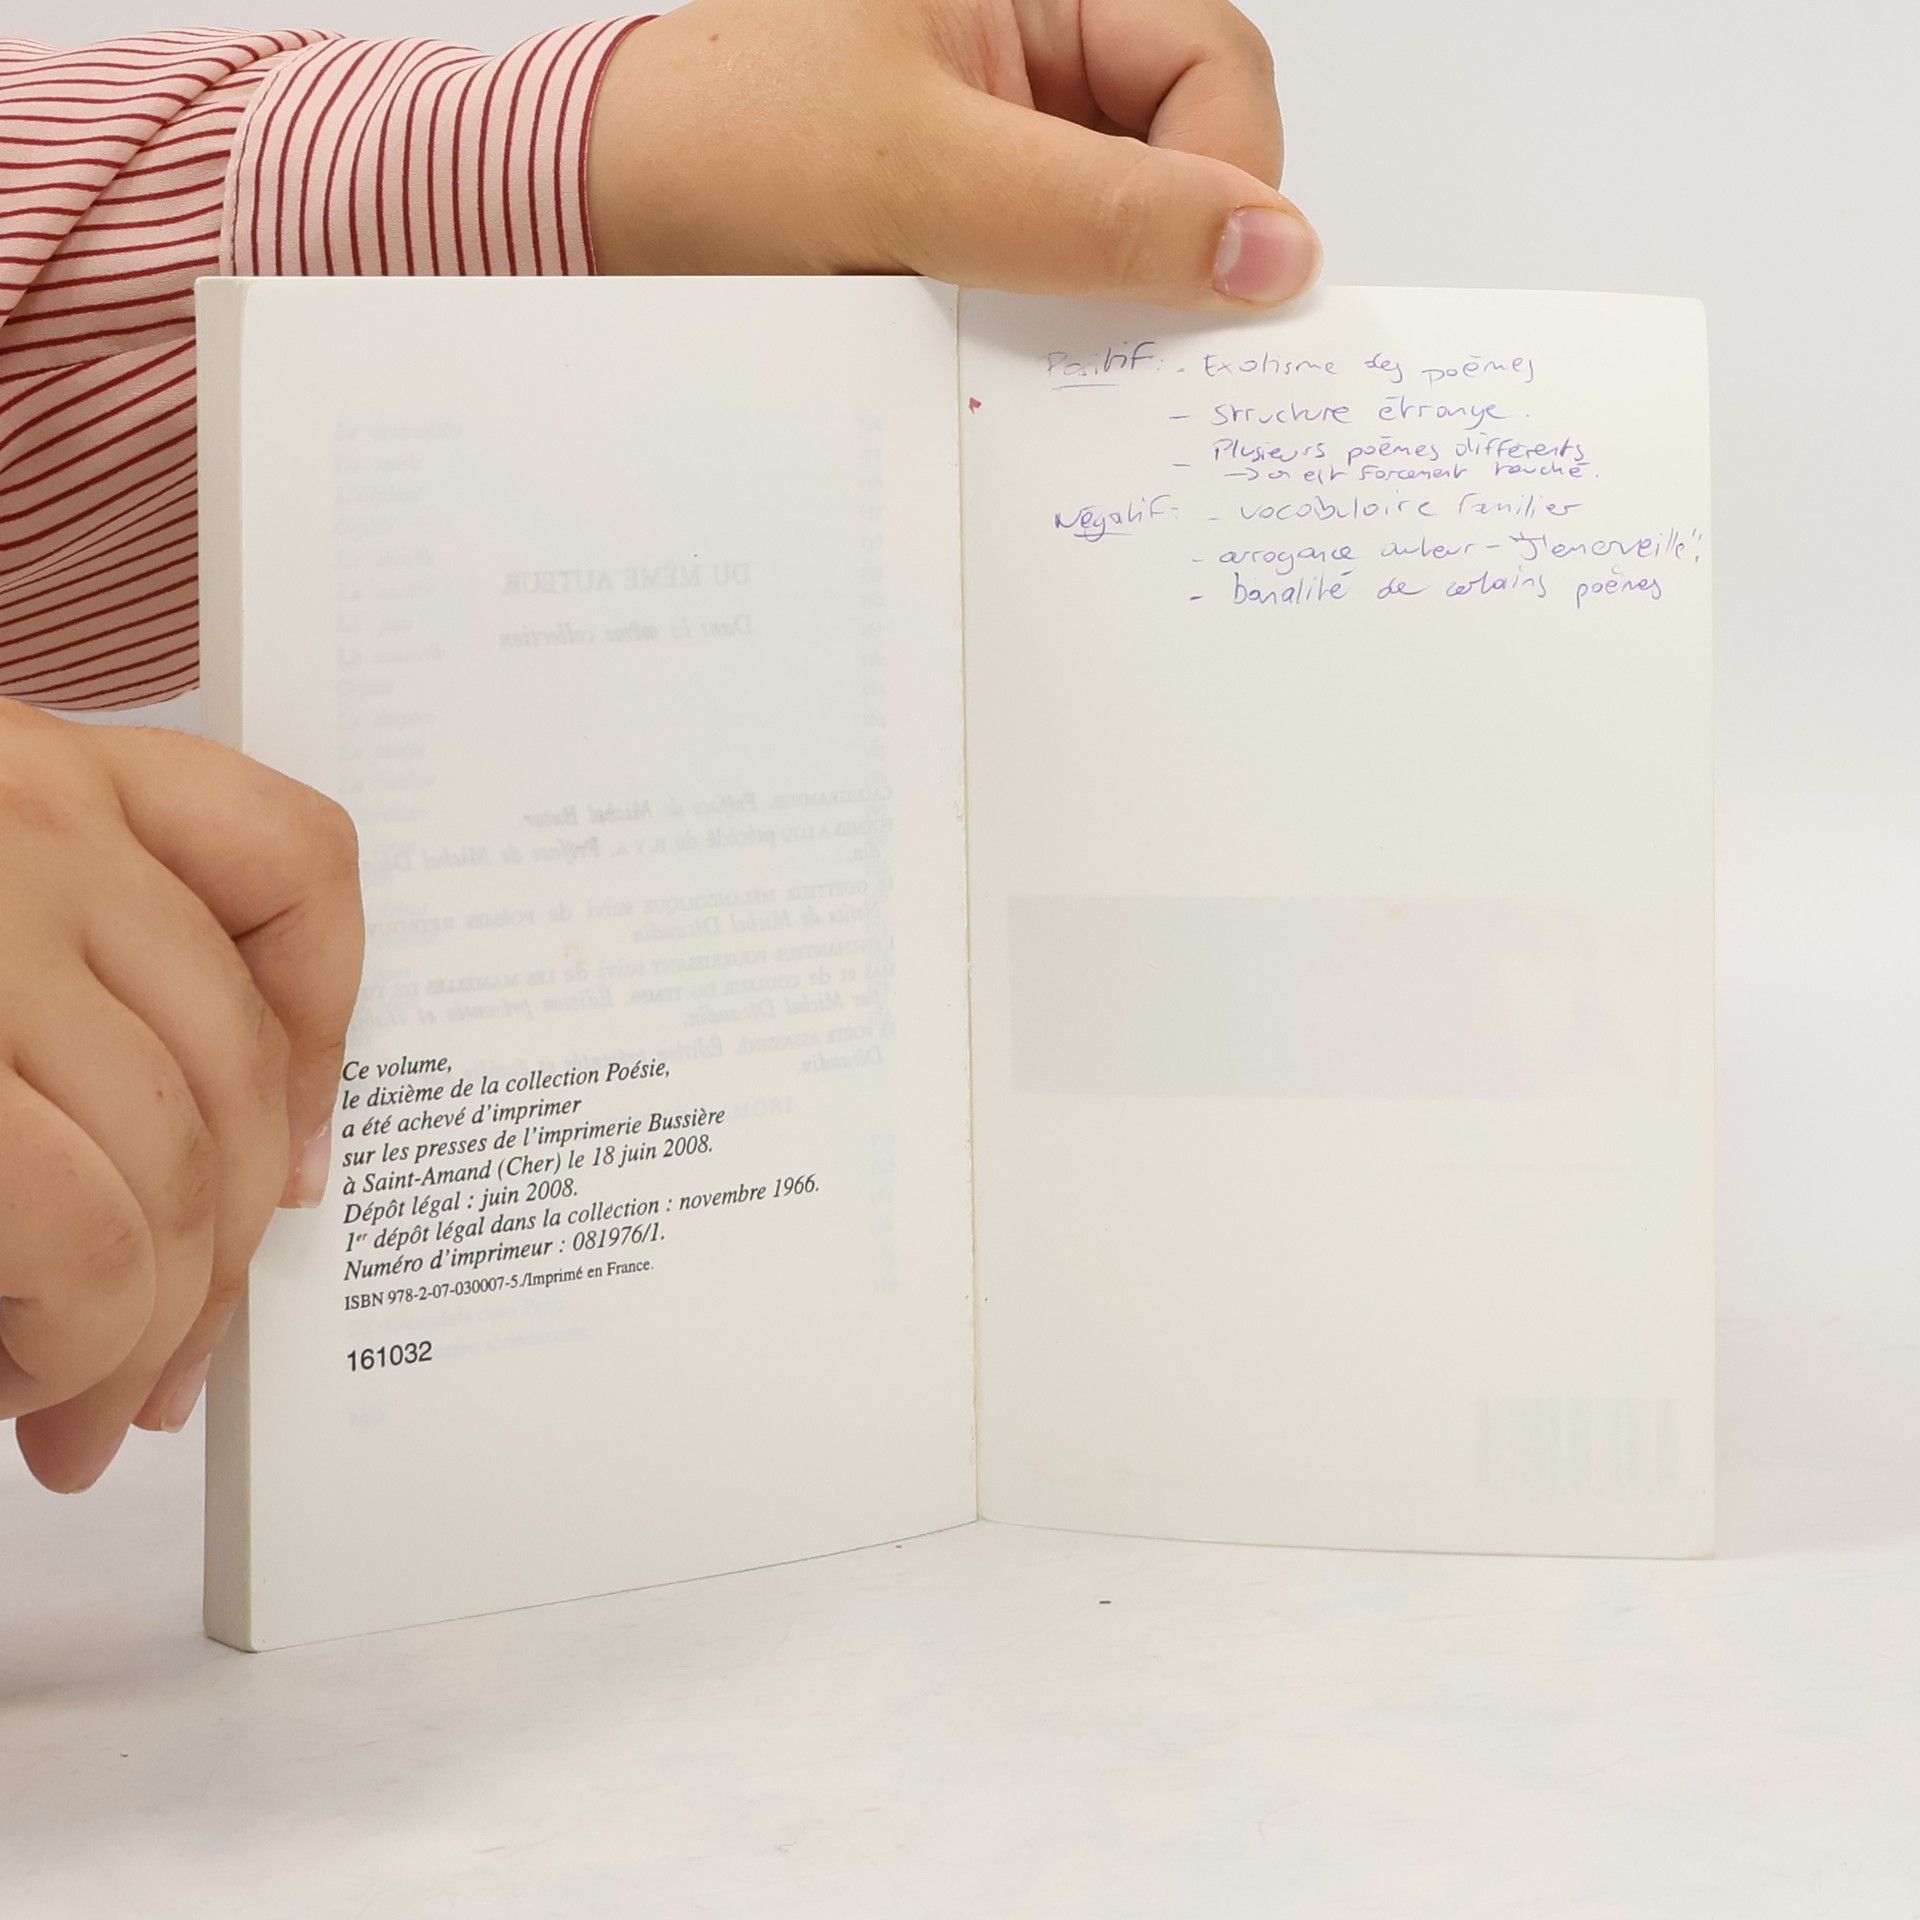 Ce volume,
le dixième de la collection Poésie,
a été achevé d'imprimer
sur les presses de l'imprimerie Bussière
à Saint-Amand (Cher) le 18 juin 2008.
Dépôt légal : juin 2008.
1er dépôt légal dans la collection : novembre 1966.
Numéro d'imprimeur : 081976/1.
ISBN 978-2-07-030007-5./Imprimé en France.
161032
Positif : - Exotisme des poèmes
- Structure étrange.
- Plusieurs poèmes différents
-> on est forcément touché.
Négatif : - vocabulaire familier
- arrogance auteur - "J'émerveille".
- banalité de certains poèmes